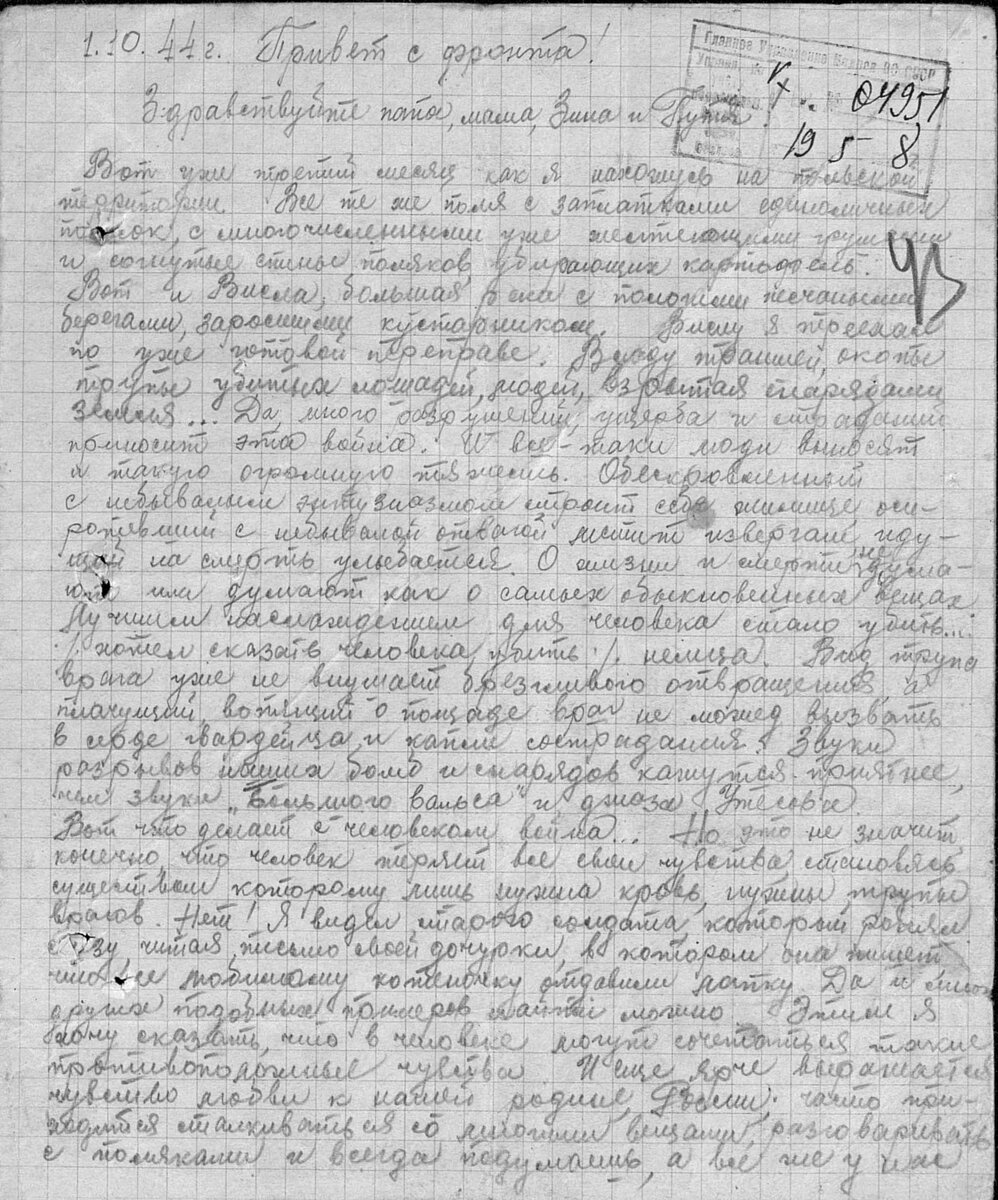 1.10.44 г. Привет с фронта!
Главное Управление ВО СССР
04951
19 5 8
Здравствуйте папа, мама, Зина и
Вот уже третий месяц как я нахожусь на польской
территории. Все те же поля с заплатками единоличных
полосок, с многочисленными уже желтеющими грушами
и согнутые спины поляков убирающих картофель.
Вот и Висла, большая река с пологими песчаными
берегами, заросшими кустарником. Вислу я переехал
по уже готовой переправе. Всюду траншеи, окопы
трупы убитых лошадей, людей, взрытая снарядами
земля... Да много разрушений, ущерба и страданий
приносит эта война. И все-таки люди выносят
и такую огромную тяжесть. Обескровленный
с небывалым энтузиазмом строит себе жилище оси-
ротевший с небывалой отвагой мстит извергам иду-
щий на смерть улыбается. О жизни и смерти не дума-
ют или думают как о самых обыкновенных вещах
Лучшим наслаждением для человека стало убить...
/. хотел сказать человека, убить ./ немца. Вид трупа
врага уже не внушает брезгливого отвращения, а
плачущий, вопящий о пощаде враг не может вызвать
в сердце гвардейца и капли сострадания. Звуки
разрывов наших бомб и снарядов кажутся приятнее,
чем звуки „Большого вальса" и джаза Утесова
Вот что делает с человеком война... Но это не значит,
конечно, что человек теряет все свои чувства, становясь
существом которому лишь нужна кровь, нужны трупы
врагов. Нет! Я видел старого солдата, который ронял
слезу, читая письмо своей дочурки, в котором она пишет
что ее любимому котеночку отдавили лапку. Да и много
других подобных примеров найти можно. Этим я
хочу сказать, что в человеке могут сочетаться такие
противоположные чувства. И еще ярче выражается
чувство любви к нашей родине, России. Часто при-
ходится сталкиваться со многими вещами, разговаривать
с поляками и всегда подумаешь, а все же у нас